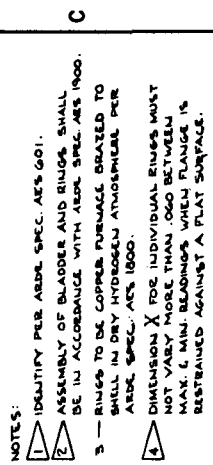 NOTES:
1 IDENTIFY PER ARDE SPEC. AES 601.
2 ASSEMBLY OF BLADDER AND RINGS SHALL
BE IN ACCORDANCE WITH ARDE SPEC. AES 1900.
3 — RINGS TO BE COPPER FURNACE BRAZED TO
SHELL IN DRY HYDROGEN ATMOSPHERE PER
ARDE SPEC. AES 1800.
4 DIMENSION X FOR INDIVIDUAL RINGS MUST
NOT VARY MORE THAN .060 BETWEEN
MAX. & MIN. READINGS WHEN FLANGE IS
RESTRAINED AGAINST A FLAT SURFACE.
C